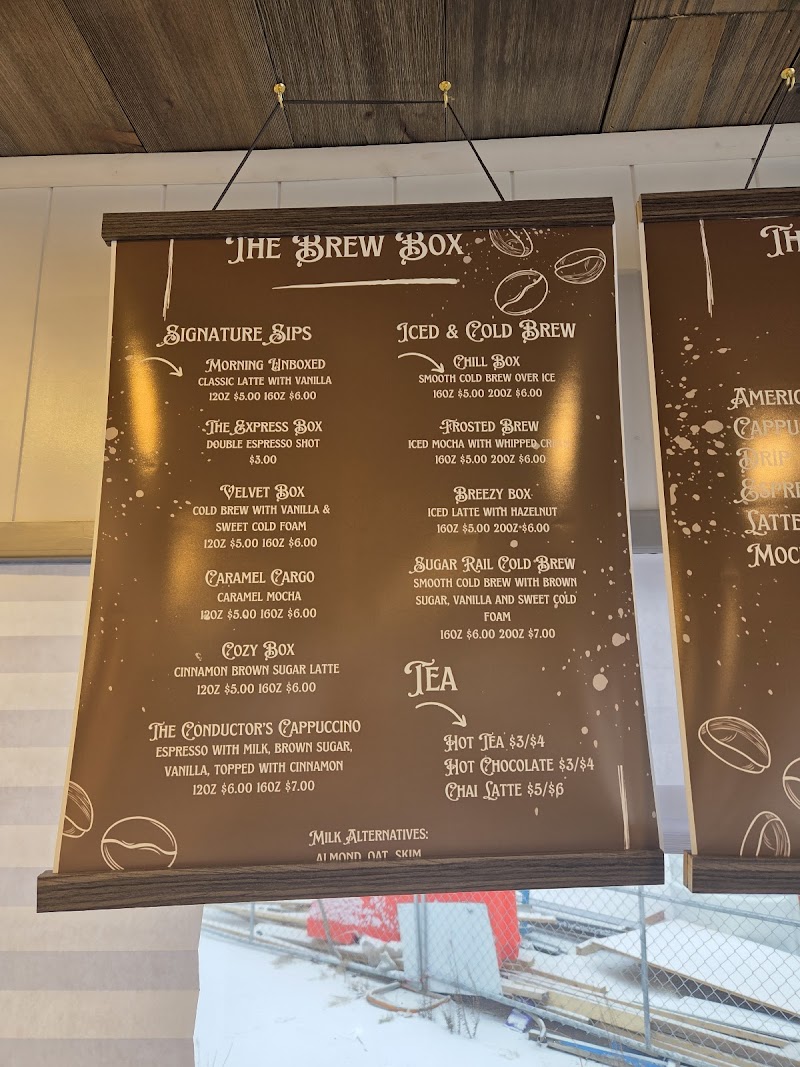 THE BREW BOX
SIGNATURE SIPS
MORNING UNBOXED
CLASSIC LATTE WITH VANILLA
12OZ $5.00 16OZ $6.00
THE EXPRESS BOX
DOUBLE ESPRESSO SHOT
$3.00
VELVET BOX
COLD BREW WITH VANILLA &
SWEET COLD FOAM
12OZ $5.00 16OZ $6.00
CARAMEL CARGO
CARAMEL MOCHA
12OZ $5.00 16OZ $6.00
COZY BOX
CINNAMON BROWN SUGAR LATTE
12OZ $5.00 16OZ $6.00
THE CONDUCTOR'S CAPPUCCINO
ESPRESSO WITH MILK, BROWN SUGAR,
VANILLA, TOPPED WITH CINNAMON
12OZ $6.00 16OZ $7.00
ICED & COLD BREW
CHILL BOX
SMOOTH COLD BREW OVER ICE
16OZ $5.00 20OZ $6.00
FROSTED BREW
ICED MOCHA WITH WHIPPED CREAM
16OZ $5.00 20OZ $6.00
BREEZY BOX
ICED LATTE WITH HAZELNUT
16OZ $5.00 20OZ $6.00
SUGAR RAIL COLD BREW
SMOOTH COLD BREW WITH BROWN
SUGAR, VANILLA AND SWEET COLD
FOAM
16OZ $6.00 20OZ $7.00
TEA
HOT TEA $3/$4
HOT CHOCOLATE $3/$4
CHAI LATTE $5/$6
MILK ALTERNATIVES:
ALMOND, OAT, SKIM
TH
AMERIC
CAPPU
DRIP
ESPRE
LATTE
MOC